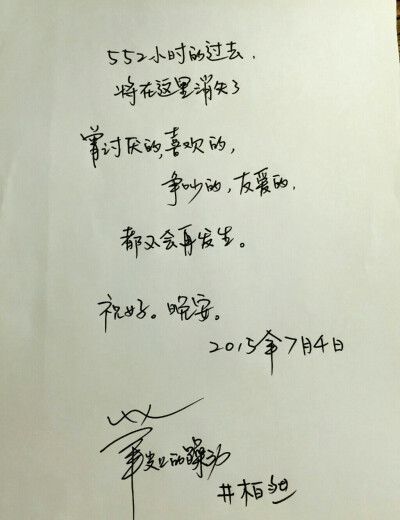 552小时的过去.
将在这里消失了
曾讨厌的,喜欢的,
争吵的,友爱的,
都不会再发生。
祝好。晚安。
2015年7月4日
的躁动
#柏